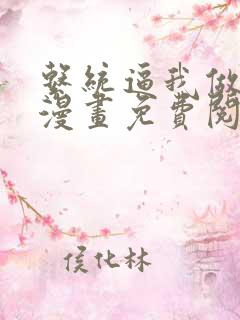 系統逼我做
漫畫免費閱
侯化林